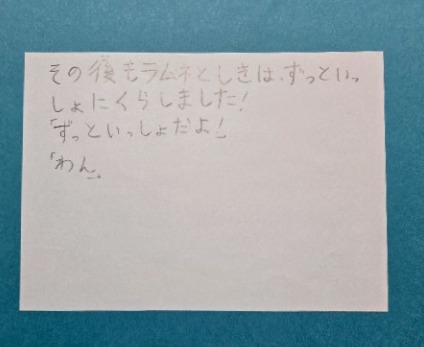 その後もラムネとしきは、ずっといっ
しょにくらしました!
「ずっといっしょだよ!」
「わん」